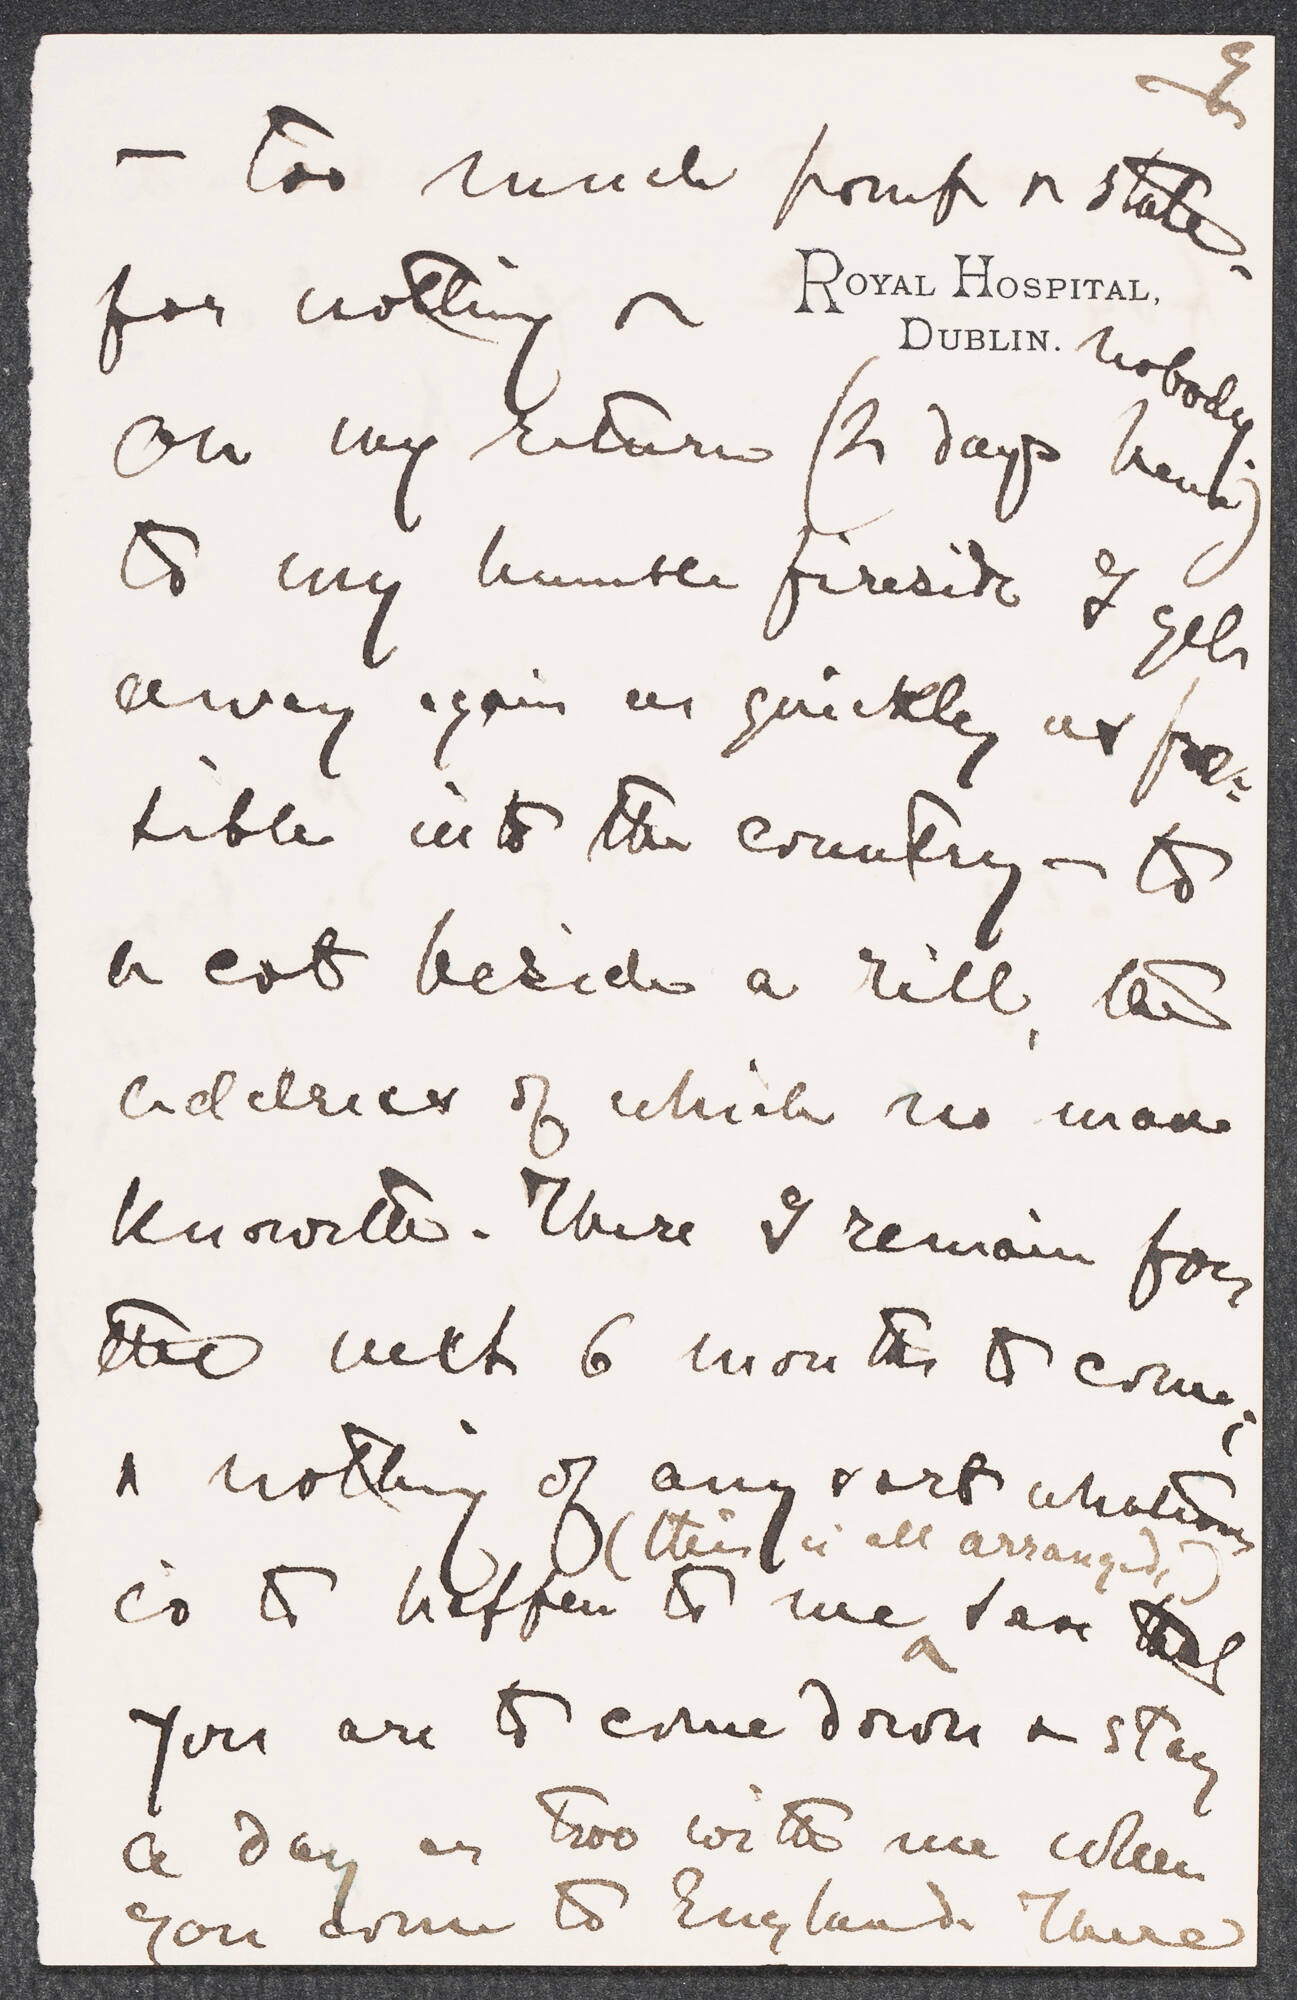 — too much pomp & state
for nothing & nobody.
ROYAL HOSPITAL,
DUBLIN.
On my return (2 days hence)
to my humble fireside I get
away again as quickly as pos=
sible into the country — to
a cot beside a rill, the
address of which no man
knoweth. There I remain for
the next 6 months to come;
& nothing of any sort whatsoever
(this is all arranged,)
is to happen to me save that
you are to come down & stay
a day or two with me when
you come to England. There